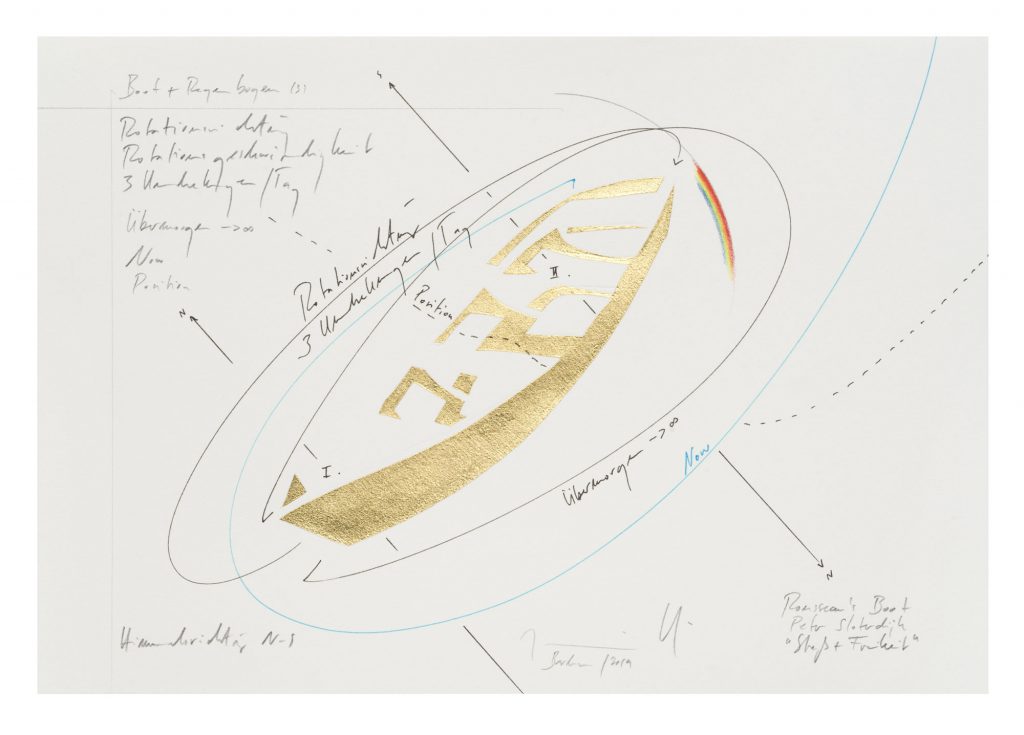 Boot + Regenbogen (3)
Rotationsrichtung
Rotationsgeschwindigkeit
3 Umdrehungen/Tag
Übermorgen ->∞
Now
Position
N
Rotationsrichtung
3 Umdrehungen/Tag
Position
II.
I.
Übermorgen ->∞
Now
N
Himmelsrichtung N-S
Berlin/2019
Rousseau's Boot
Peter Sloterdijk
"Streß + Freiheit"